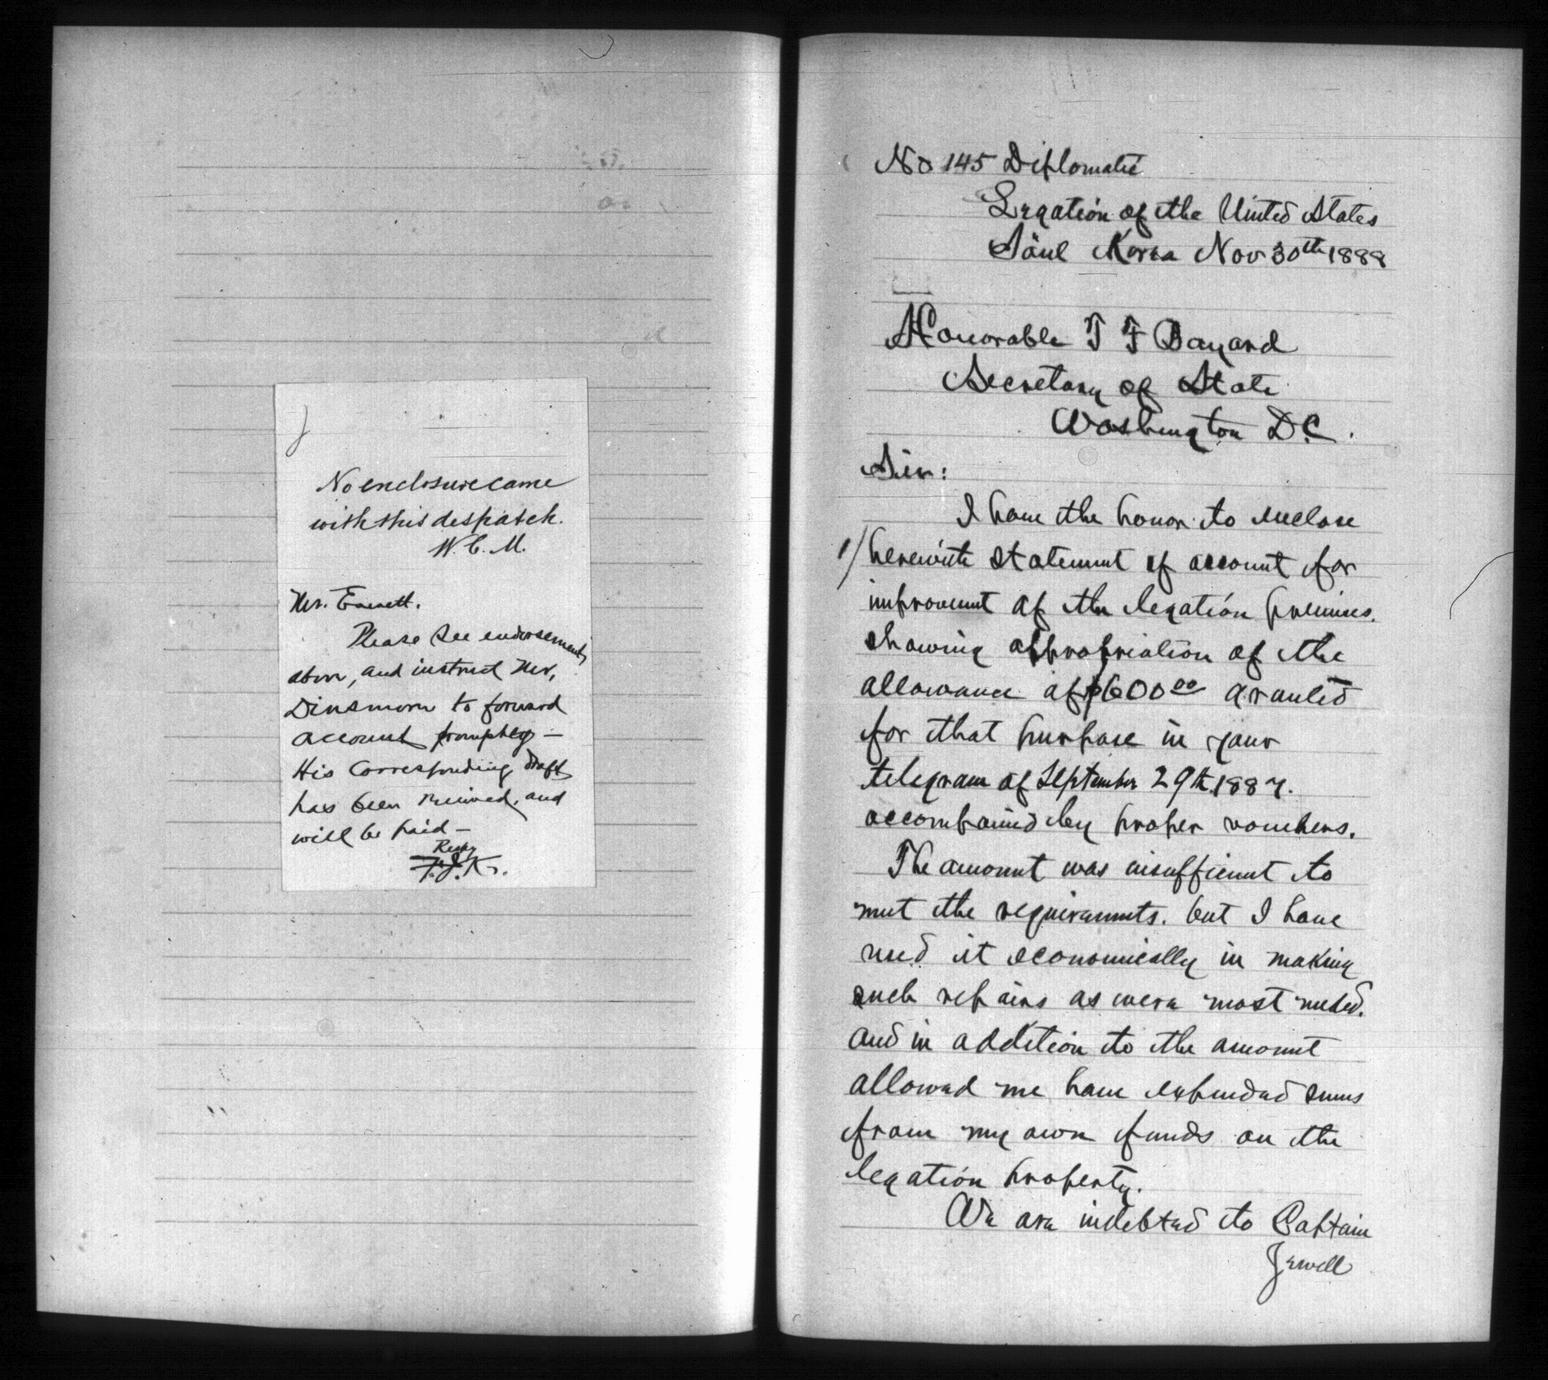 No enclosure came
with this despatch.
W. C. M.
Mr. Everett.
Please see endorsement
above, and instruct Mr.
Dinsmore to forward
account promptly —
His corresponding draft
has been received, and
will be paid —
Respy
F. J. K.
No 145 Diplomatic
Legation of the United States
Söul Korea Nov 30th 1888
Honorable T F Bayard
Secretary of State
Washington D.C.
Sir:
I have the honor to enclose
1/ herewith statement of account for
improvement of the legation premises.
showing appropriation of the
allowance of $600 00 granted
for that purpose in your
telegram of September 29th 1887.
accompanied by proper vouchers.
The amount was insufficient to
meet the requirements. but I have
used it economically in making
such repairs as were most needed.
and in addition to the amount
allowed me have expended sums
from my own funds on the
legation property.
We are indebted to Captain
Jewell